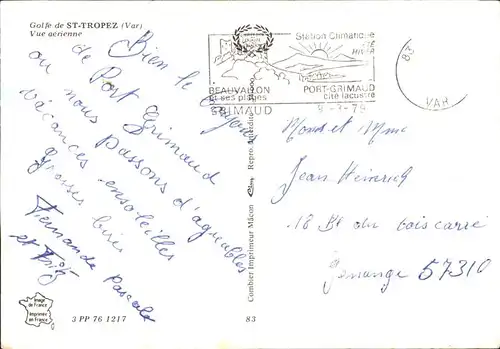 Golfe de ST-TROPEZ (Var)
Vue aérienne
Bien le bonjour
de Port Grimaud
ou nous passons d'agréables
vacances ensoleillées
Grosses bises
Fernande Pascale
et Fritz
Station Climatique
ÉTÉ
HIVER
BEAUVALLON
et ses plages
PORT-GRIMAUD
cité lacustre
GRIMAUD
83
VAR
Monsieur et Mme
Jean Heinrich
18 Bt du bois carré
57310
Combier Imprimeur Mâcon
Image de France
Imprimée en France
3 PP 76 1217
83